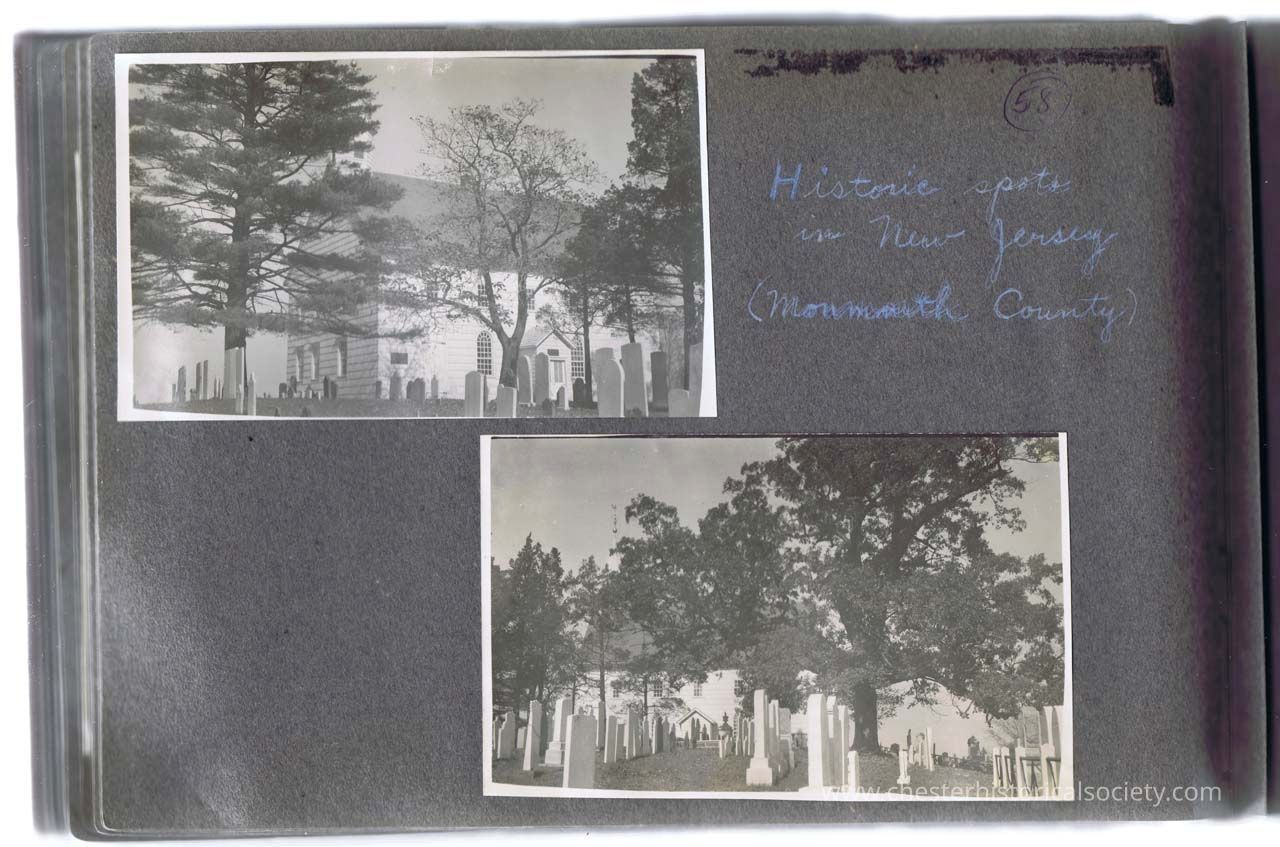 58
Historic spots
in New Jersey
(Monmouth County)
www.chesterhistoricalsociety.com